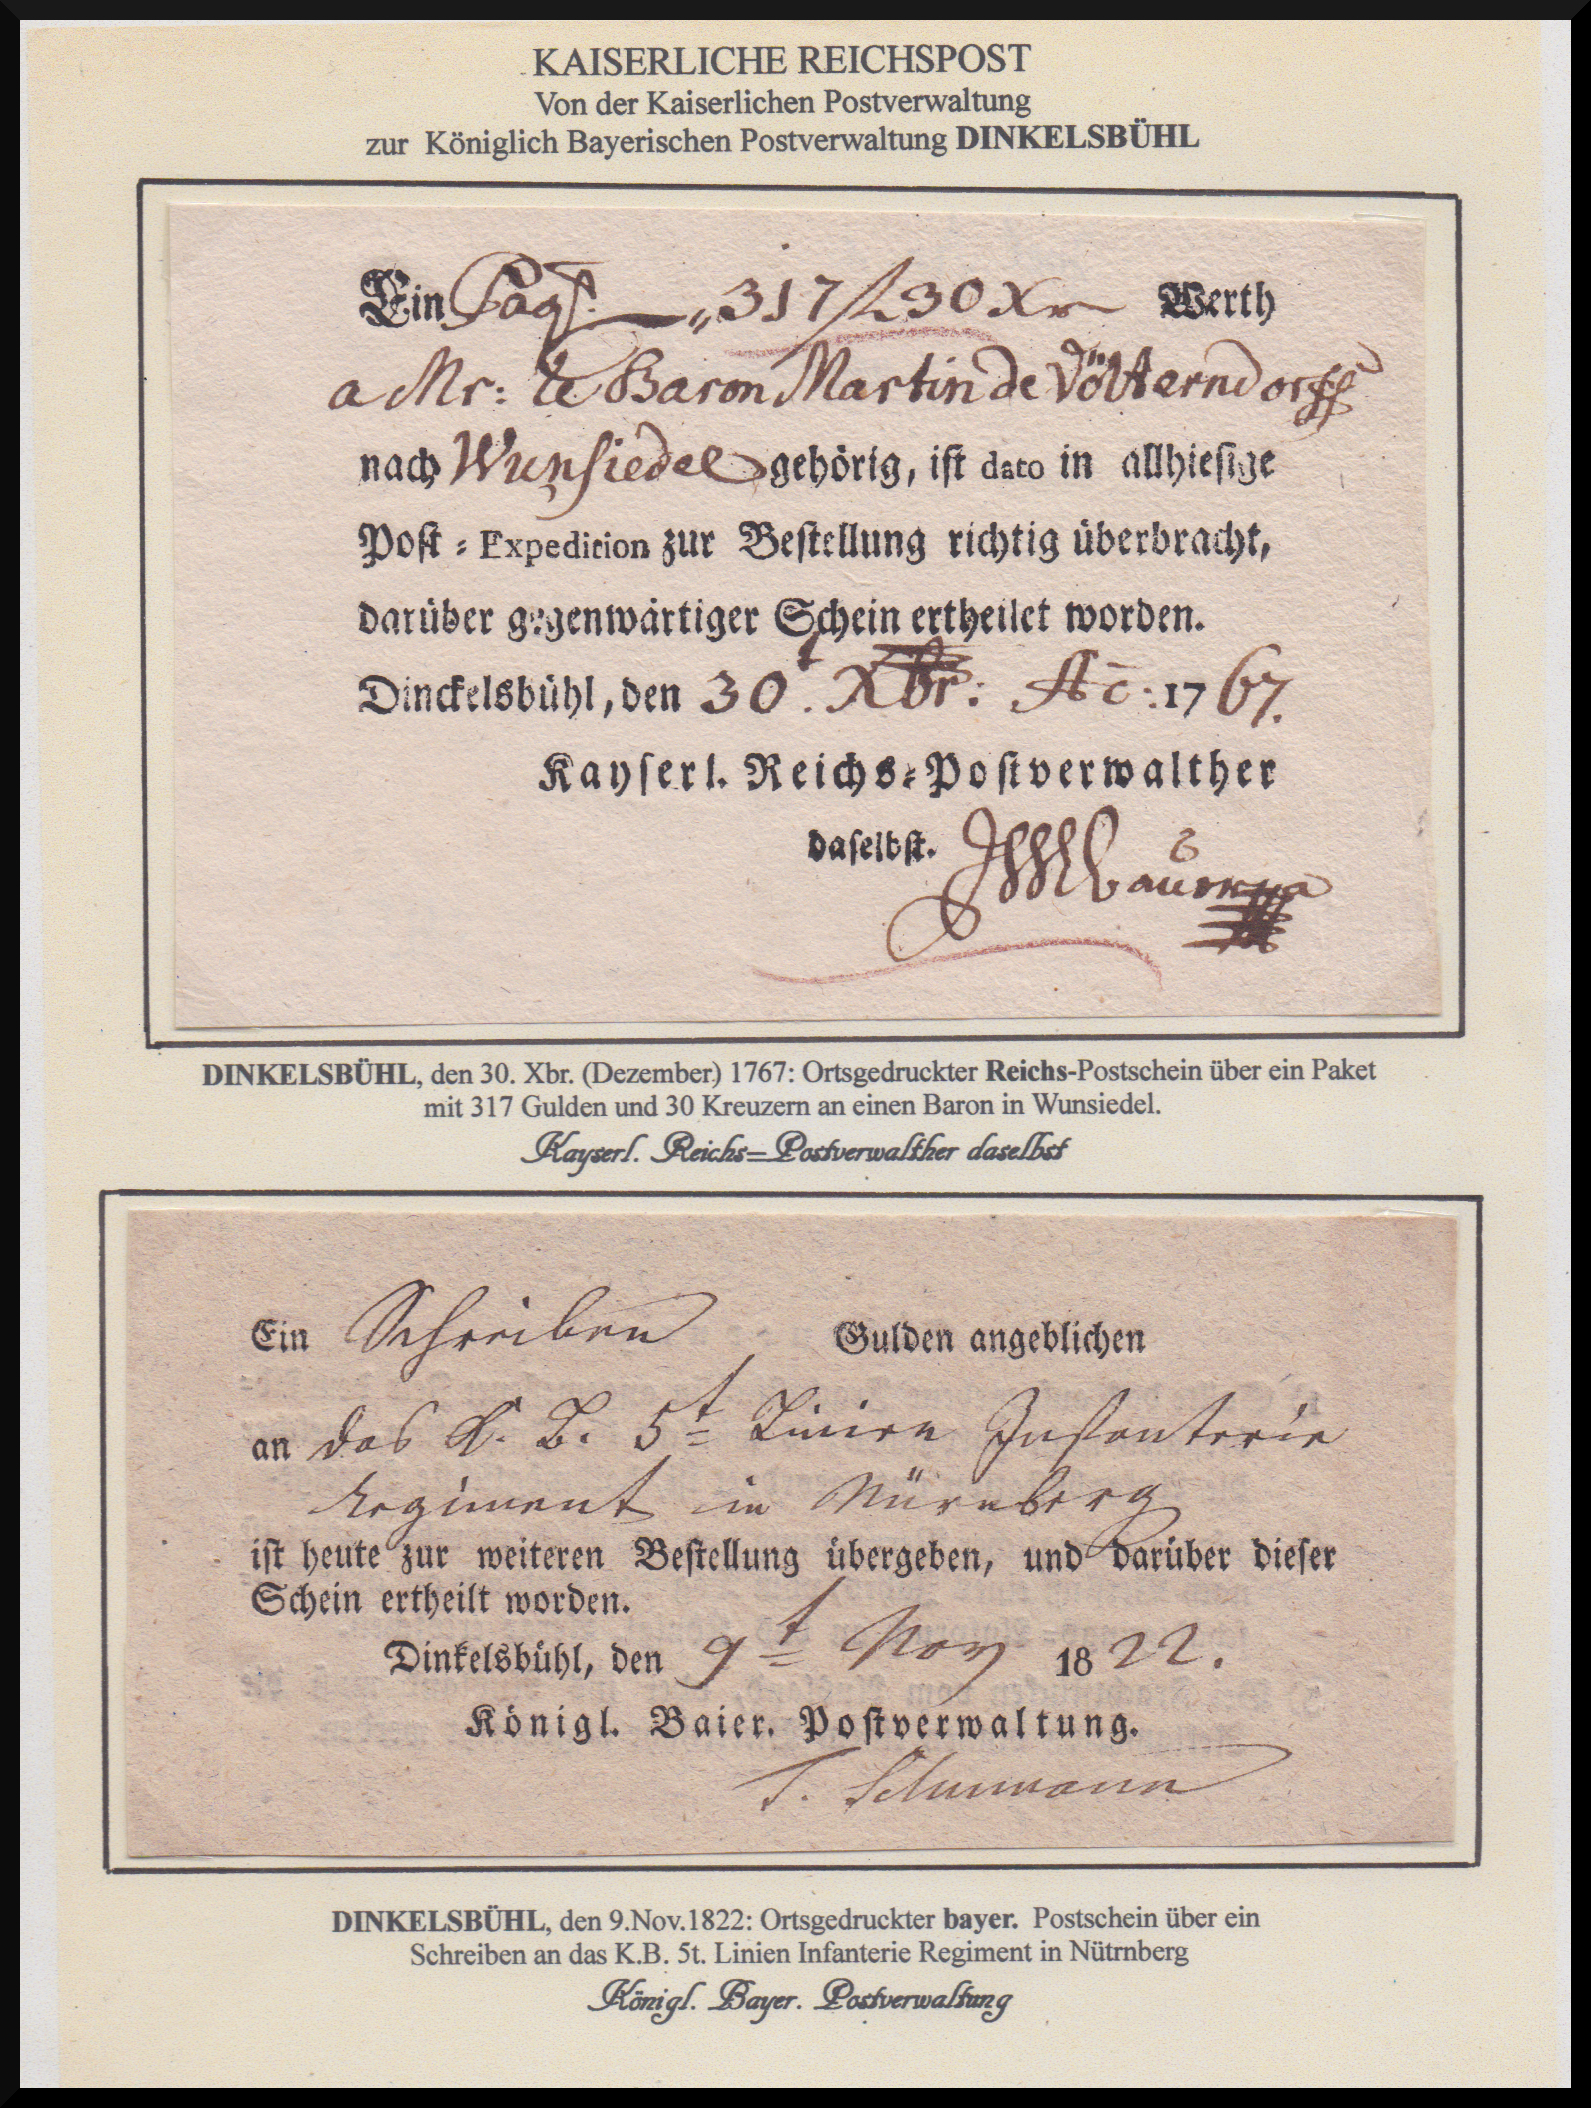 KAISERLICHE REICHSPOST
Von der Kaiserlichen Postverwaltung
zur Königlich Bayerischen Postverwaltung DINKELSBÜHL
Ein Paqt. „317 f 30 Xr Werth
a Mr: le Baron Martin de Völterndorff
nach Wunsiedel gehörig, ist dato in allhiesige
Post-Expedition zur Bestellung richtig überbracht,
darüber gegenwärtiger Schein ertheilet worden.
Dinckelsbühl, den 30t. Xbr: Ao: 1767.
Kayserl. Reichs-Postverwalther
daselbst.
DINKELSBÜHL, den 30. Xbr. (Dezember) 1767: Ortsgedruckter Reichs-Postschein über ein Paket
mit 317 Gulden und 30 Kreuzern an einen Baron in Wunsiedel.
Kayserl. Reichs=Postverwalther daselbst
Ein Schreiben Gulden angeblichen
an das K. B. 5t Linien Infanterie
Regiment in Nürnberg
ist heute zur weiteren Bestellung übergeben, und darüber dieser
Schein ertheilt worden.
Dinkelsbühl, den 9t Nov 1822.
Königl. Baier. Postverwaltung.
T. Schumann
DINKELSBÜHL, den 9.Nov.1822: Ortsgedruckter bayer. Postschein über ein
Schreiben an das K.B. 5t. Linien Infanterie Regiment in Nütrnberg
Königl. Bayer. Postverwaltung